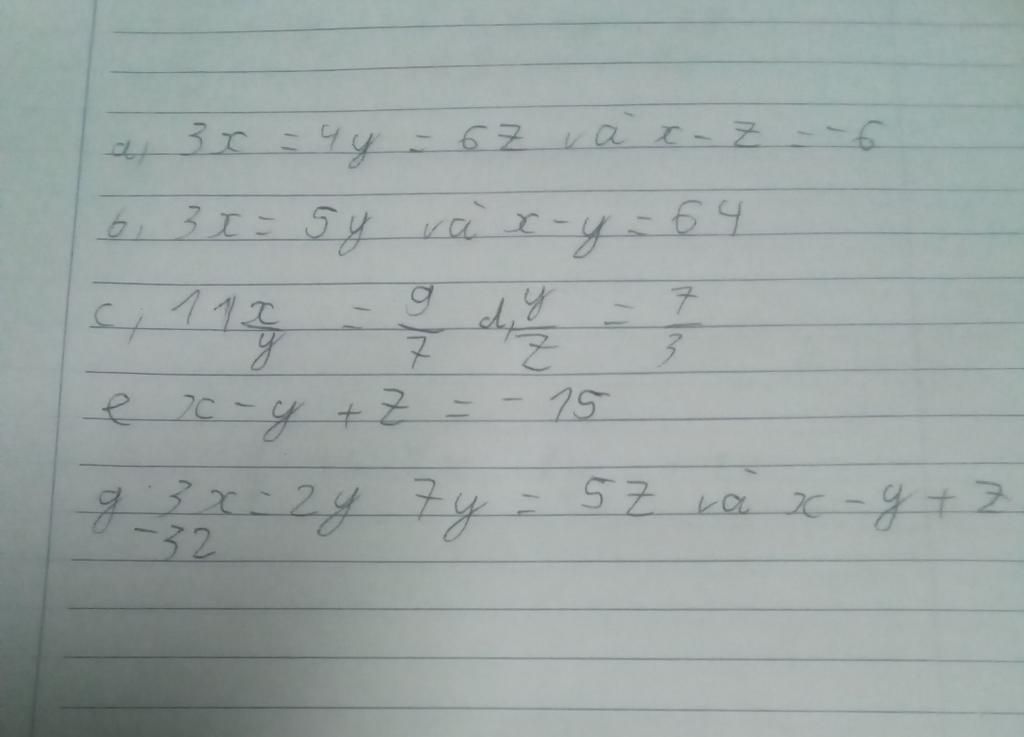 a, 3x = 4y = 6z và x - z = -6
b, 3x = 5y và x - y = 64
c, 11 x/y = 9/7 d, y/z = 7/3
e x - y + z = - 15
g 3x = 2y 7y = 5z và x - y + z
-32